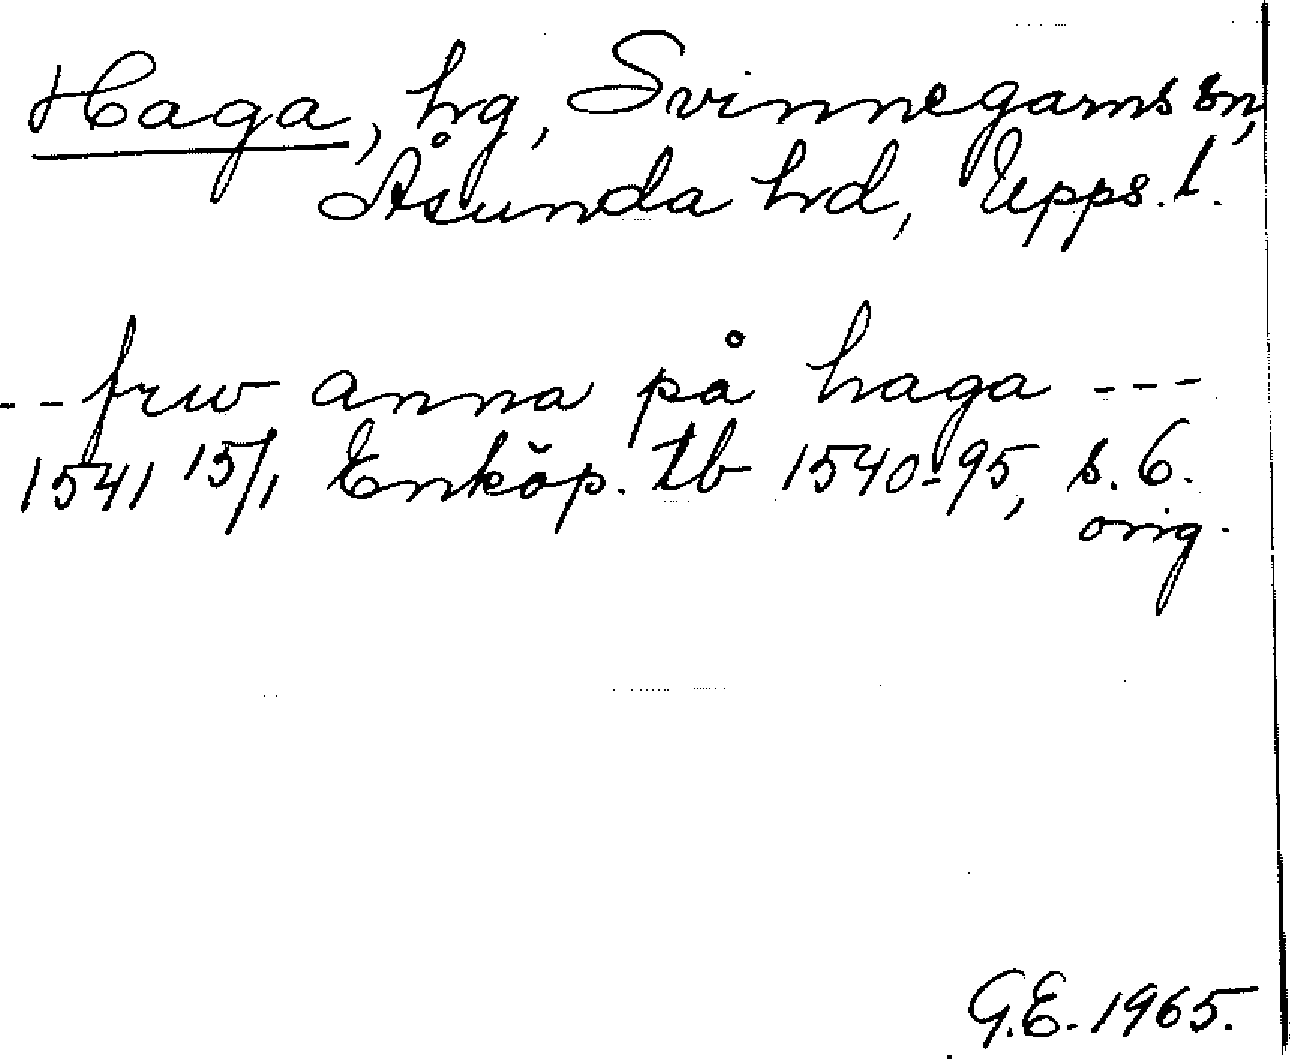 Haga, hg, Svinnegarns sn,
Åsunda hd, Upps. l.
-- frw anna på haga ---
1541 15/1 Enköp. tb 1540-95, s. 6.
orig.
G.E. 1965.